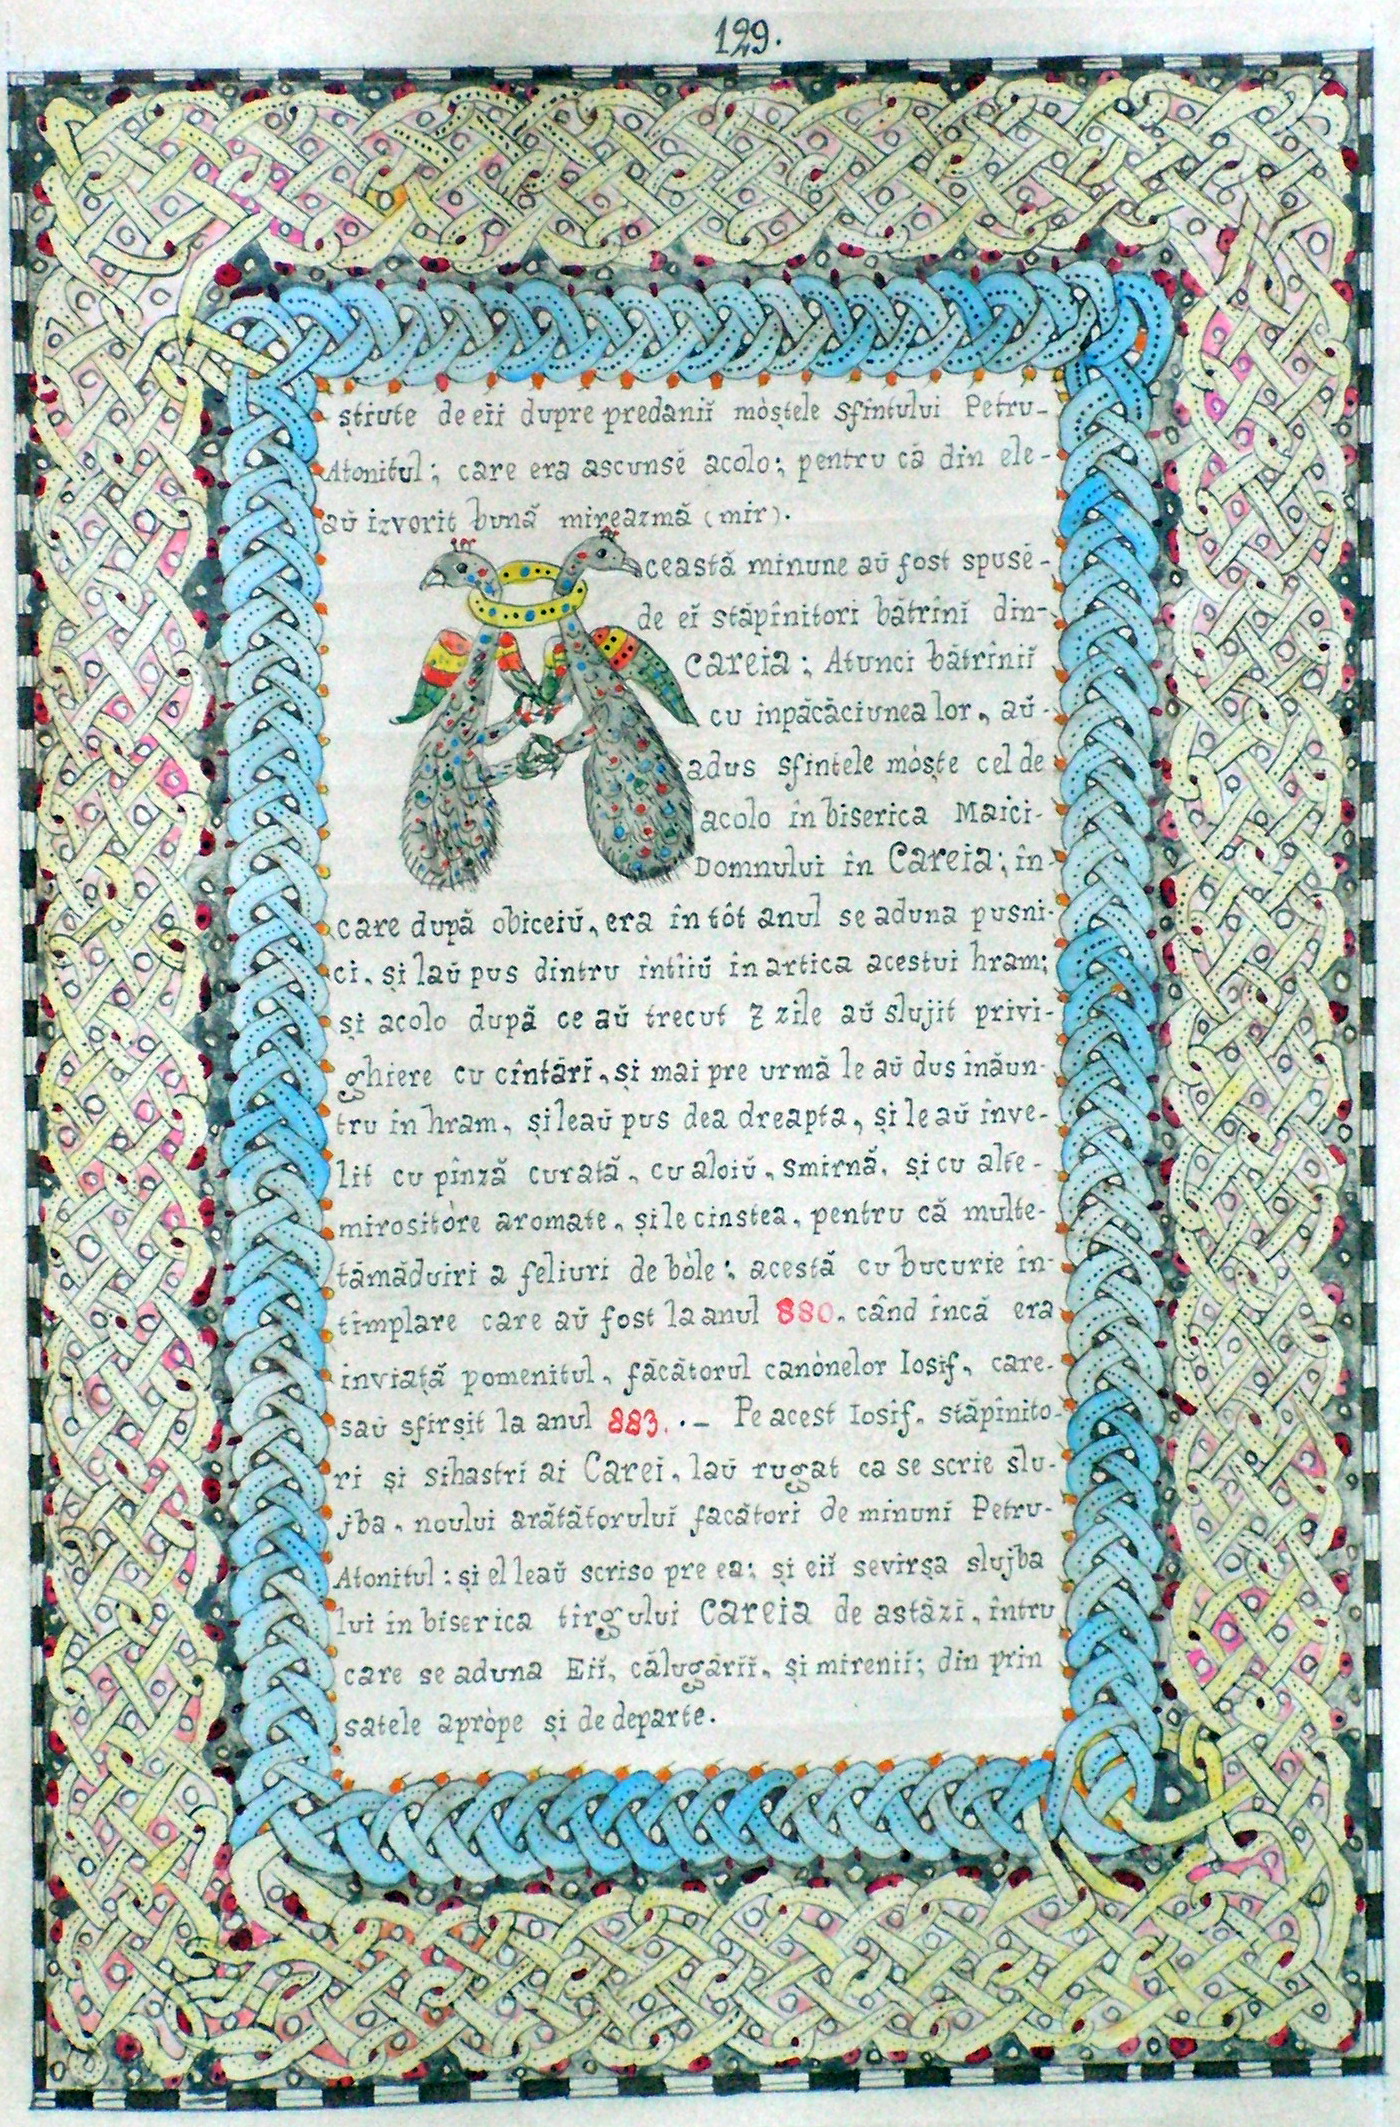 129.
știute de eiĭ dupre predaniĭ mòștele sfîntului Petru-
Atonitul; care era ascunsĕ acolo; pentru că din ele-
aŭ izvorit bună mireazmă (mir).
ceastă minune aŭ fost spusĕ-
de eĭ stăpînitori bătrînĭ din-
careia; Atunci bătrîniĭ
cu inpăcăciunea lor, aŭ-
adus sfintele mòște cel de
acolo în biserica Maici-
Domnului în Careia; în-
care după obiceiŭ, era în tôt anul se aduna pusni-
ci, și laŭ pus dintru întîiŭ în artica acestui hram;
și acolo după ce aŭ trecut 7 zile aŭ slujit privi-
ghiere cu cîntărĭ, și mai pre urmă le aŭ dus înăun-
tru în hram, și leaŭ pus dea dreapta, și le aŭ înve-
lit cu pînză curată, cu aloiŭ, smirnă, și cu alte-
mirositòre aromate, și le cinstea, pentru că multe-
tămăduiri a feliuri de bòle; acestă cu bucurie în-
tîmplare care aŭ fost la anul 880, când încă era
inviață pomenitul, făcătorul canònelor Iosif, care-
saŭ sfîrșit la anul 883. .– Pe acest Iosif, stăpînito-
ri și sihastri ai Carei, laŭ rugat ca se scrie slu-
jba, noului arătătorului facători de minuni Petru-
Atonitul; și el leaŭ scriso pre ea; și eiĭ sevirșa slujba
lui in biserica tîrgului careia de astăzĭ, întru
care se aduna Eiĭ, călugăriĭ, și mireniĭ; din prin
satele apròpe și de departe.